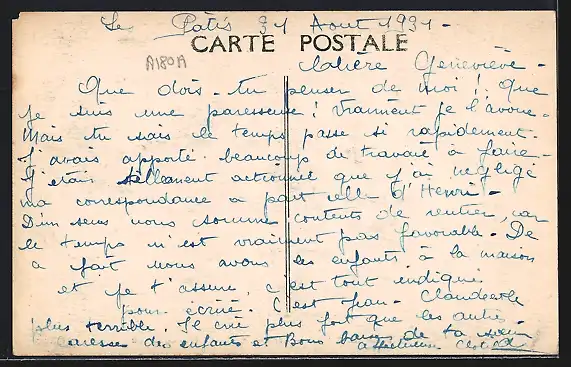 Le Patis 31 Aout 1931 -
CARTE POSTALE
A180A
Ma chère Geneviève -
Que dois-tu penser de moi ! Que
je suis une paresseuse ! Vraiment je l'avoue -
Mais tu sais le temps passe si rapidement -
J'avais apporté beaucoup de travail à faire -
J'étais tellement actionnée que j'ai négligé
ma correspondance à part celle d'Henri -
D'un sens nous sommes contents de rentrer, car
le temps n'est vraiment pas favorable - De
ce fait nous avons les enfants à la maison
et je t'assure, c'est tout indiqué
pour écrire. C'est Jean-Claude le
plus terrible. Il crie plus fort que les autres
Caresse des enfants et Bons baisers de ta
affectueuse